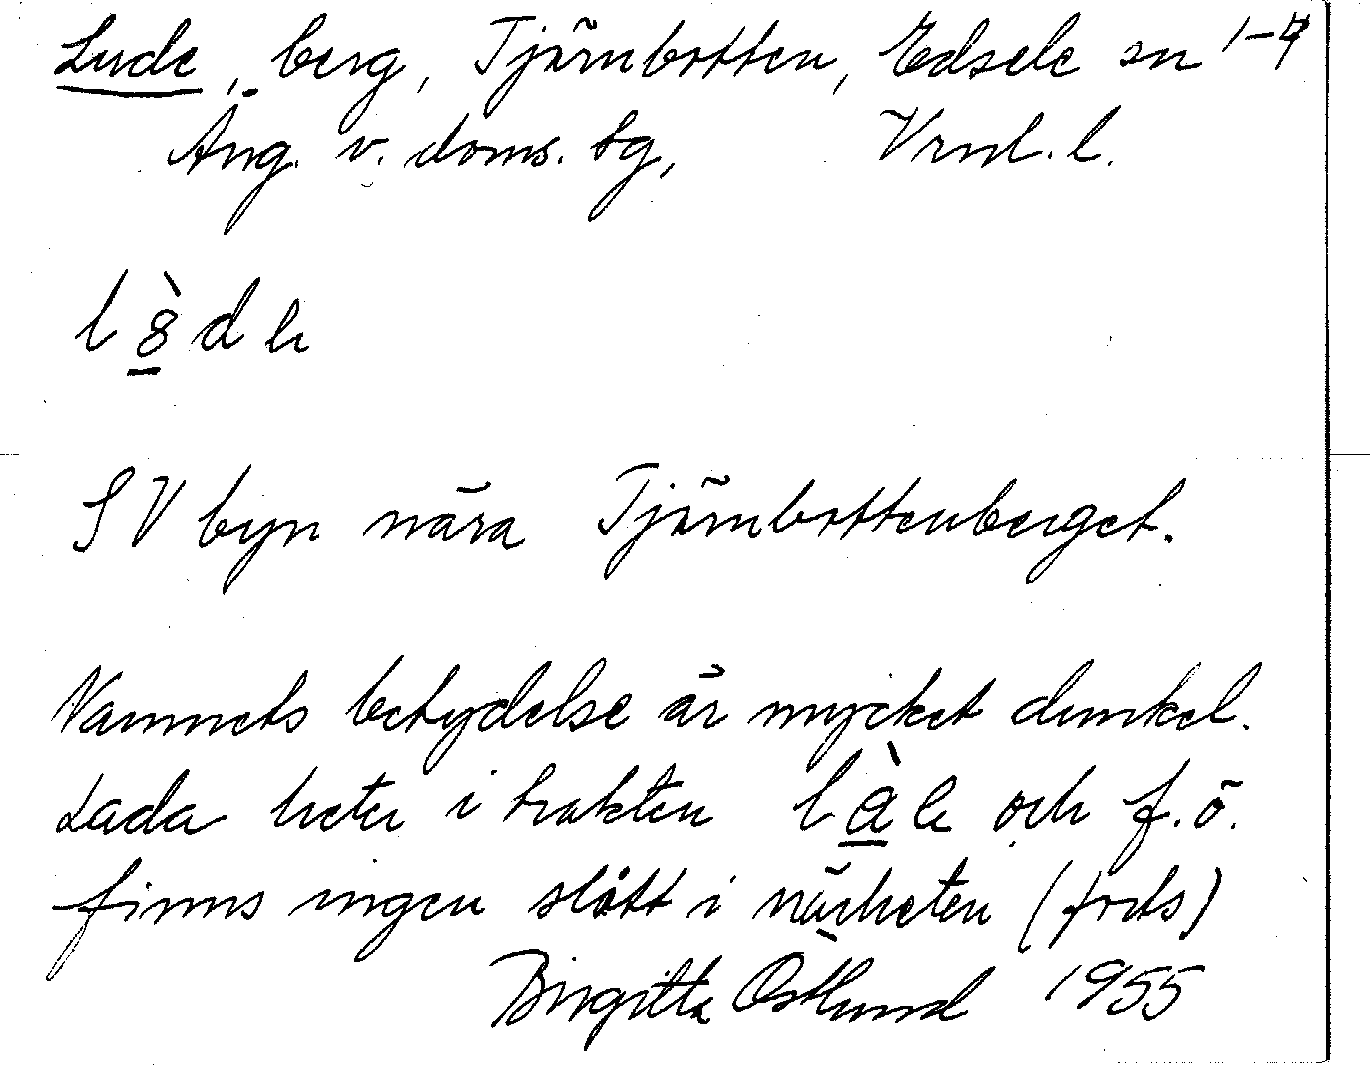 Lude, berg, Tjärnbotten, Edsele sn 1-4
Ång. v. doms. tg, Vrnl. l.
SV byn nära Tjärnbottenberget.
Namnets betydelse är mycket dunkel.
Lada heter i trakten och f.ö.
finns ingen slått i närheten (forts)
Birgitta Östlund 1955